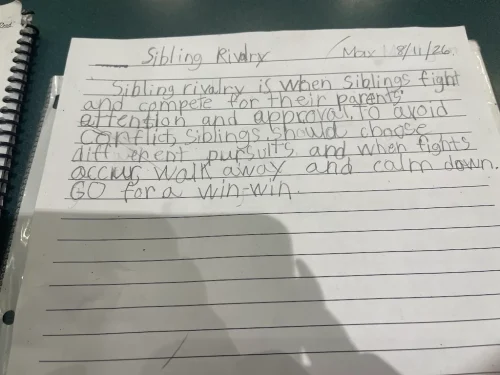 Sibling Rivalry Max 8/11/26
Sibling rivalry is when siblings fight
and compete for their parents'
attention and approval, to avoid
conflict, siblings should choose
different pursuits, and when fights
occur, walk away and calm down.
GO for a win-win.